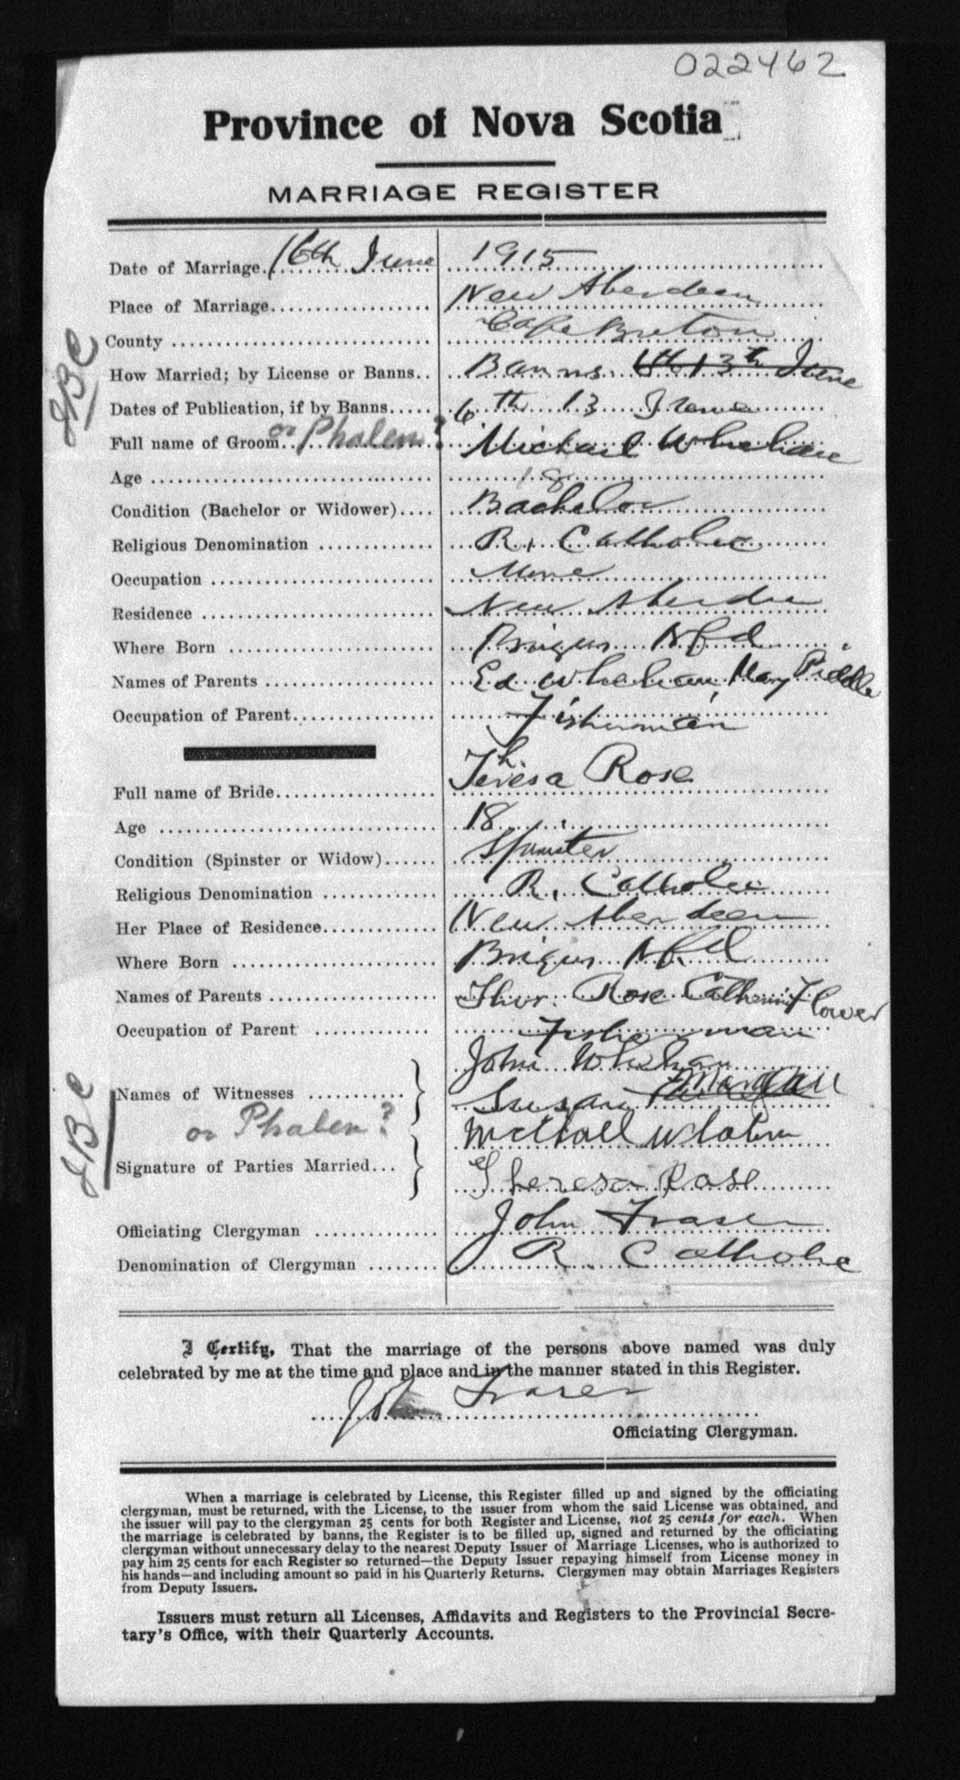 022462
Province of Nova Scotia
MARRIAGE REGISTER
Date of Marriage 16th June 1915
Place of Marriage New Aberdeen
County Cape Breton
How Married; by License or Banns Banns 6th 13th June
Dates of Publication, if by Banns 6th 13 June
JBC
Full name of Groom or Phalen? Michail Whelan
Age 18
Condition (Bachelor or Widower) Bachelor
Religious Denomination R. Catholic
Occupation
Residence New Aberdee
Where Born Brigus Nfd
Names of Parents Ed Whelan, Mary Piddle
Occupation of Parent Fisherman
Full name of Bride Theresa Rose
Age 18
Condition (Spinster or Widow) Spinster
Religious Denomination R. Catholic
Her Place of Residence New Aberdeen
Where Born Brigus Nfd
Names of Parents Thos. Rose Catherine Flower
Occupation of Parent Fisherman
John Whelan
Names of Witnesses Susan
JBC
or Phalen?
Signature of Parties Married
Theresa Rose
Officiating Clergyman John Fraser
Denomination of Clergyman R. Catholic
I Certify, That the marriage of the persons above named was duly
celebrated by me at the time and place and in the manner stated in this Register.
John Fraser
Officiating Clergyman.
When a marriage is celebrated by License, this Register filled up and signed by the officiating
clergyman, must be returned, with the License, to the issuer from whom the said License was obtained, and
the issuer will pay to the clergyman 25 cents for both Register and License, not 25 cents for each. When
the marriage is celebrated by banns, the Register is to be filled up, signed and returned by the officiating
clergyman without unnecessary delay to the nearest Deputy Issuer of Marriage Licenses, who is authorized to
pay him 25 cents for each Register so returned—the Deputy Issuer repaying himself from License money in
his hands—and including amount so paid in his Quarterly Returns. Clergymen may obtain Marriages Registers
from Deputy Issuers.
Issuers must return all Licenses, Affidavits and Registers to the Provincial Secre-
tary's Office, with their Quarterly Accounts.